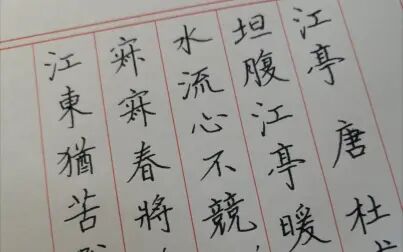 江亭 唐 杜
坦腹江亭暖
水流心不競
寂寂春將
江東猶苦